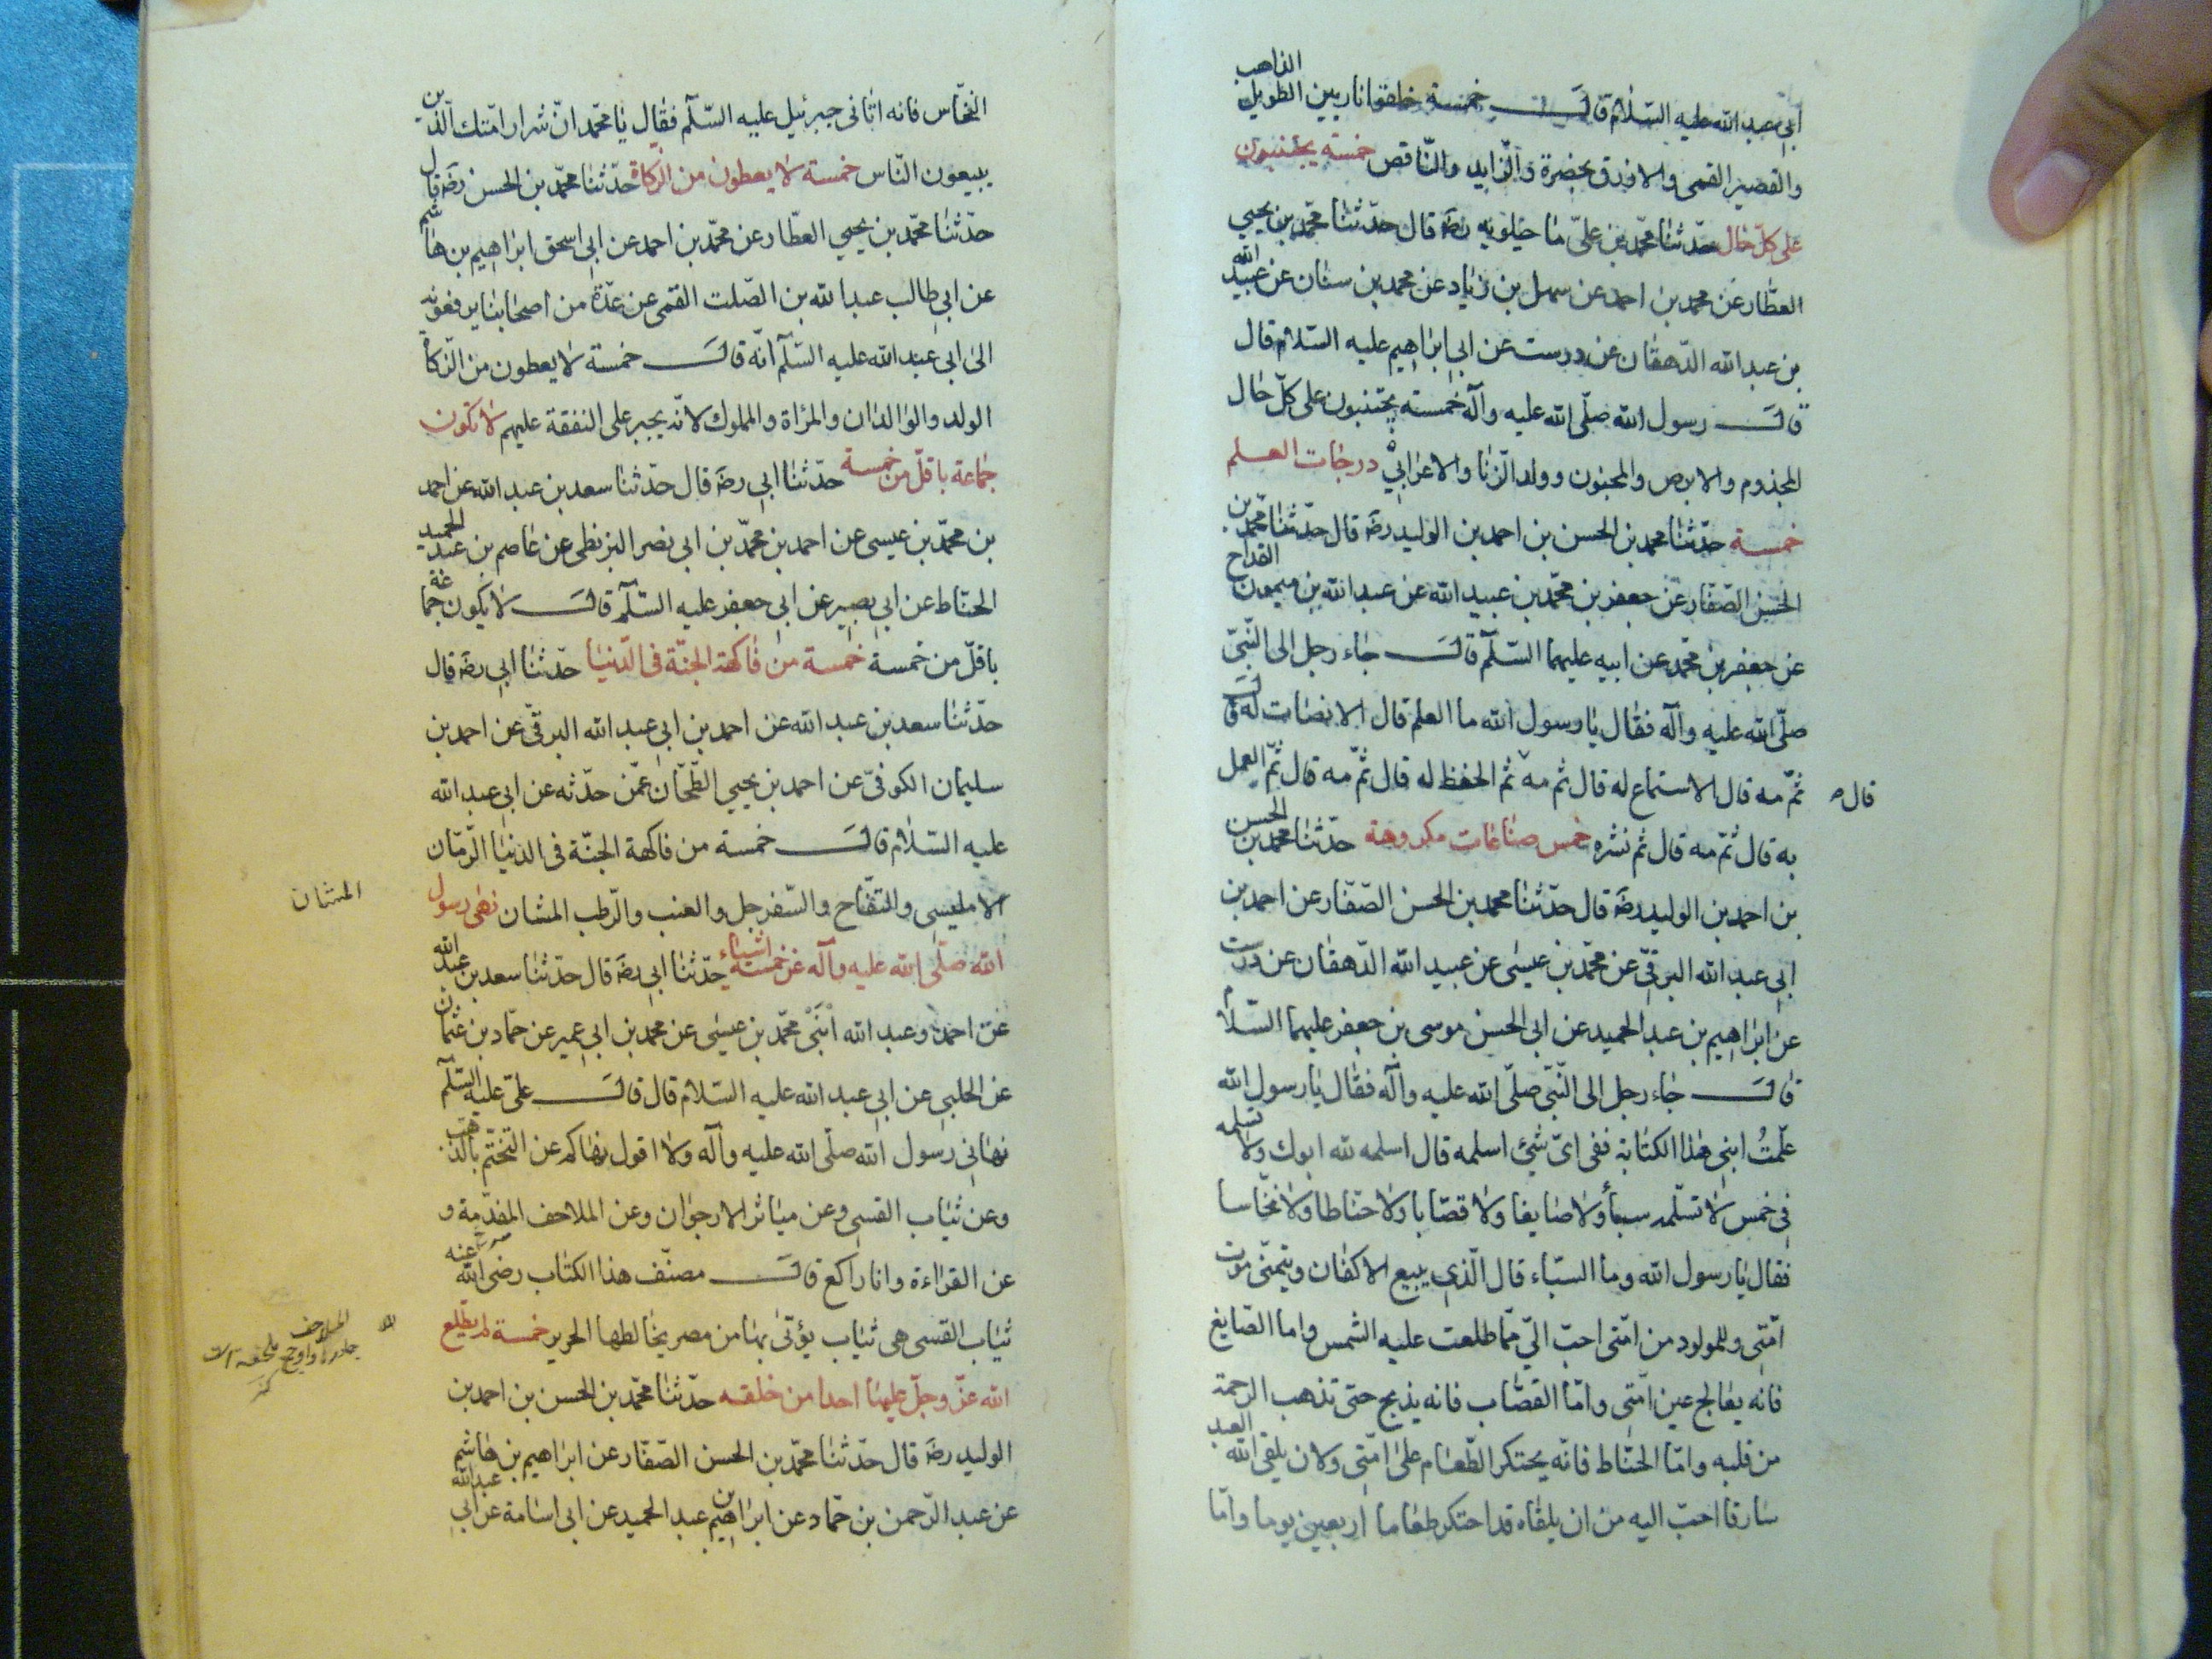 أبي عبد الله عليه السّلام قال خمسة خلقوا ناريين الطويل الذاهب
والقصير القمى والازرق بخضرة والزّايد والنّاقص خمسة يجتنبون
على كلّ حال حدّثنا محمّد بن علىّ ما جيلويه رضه قال حدّثنا محمّد بن يحيي
العطّار عن محمد بن احمد عن سهل بن زياد عن محمد بن سنان عن عبيد الله
بن عبد الله الدّهقان عن درست عن ابي ابراهيم عليه السّلام قال
قال رسول الله صلّى الله عليه وآله خمسة يجتنبون على كلّ حال
المجذوم والابرص والمجنون وولد الزّنا والاعرابيّ درجات العلم
خمسة حدّثنا محمد بن الحسن بن احمد بن الوليد رضه قال حدّثنا محمّد بن
الحسن الصّفّار عن جعفر بن محمّد بن عبيد الله عن عبد الله بن ميمون القداح
عن جعفر بن محمّد عن ابيه عليهما السّلم قال جاء رجل الى النّبيّ
صلّى الله عليه وآله فقال يا رسول الله ما العلم قال الانصات له قال
ثمّ مه قال الاستماع له قال ثم مه ثم الحفظ له قال ثمّ مه قال ثمّ العمل
قال
به قال ثمّ مه قال ثم نشره خمس صناعات مكروهة حدّثنا محمد بن الحسن
بن احمد بن الوليد رضه قال حدّثنا محمد بن الحسن الصّفّار عن احمد بن
ابي عبد الله البرقيّ عن محمّد بن عيسى عن عبيد الله الدّهقان عن درست
عن ابراهيم بن عبد الحميد عن ابى الحسن موسى بن جعفر عليهما السّلام
قال جاء رجل الى النّبيّ صلّى الله عليه وآله فقال يا رسول الله
علّمتُ ابني هذا الكتابة ففي ايّ شئ اسلمه قال اسلمه لله ابوك ولا تسلمه
في خمس لا تسلّمه سباء ولا صايغا ولا قصّابا ولا حنّاطا ولا نخّاسا
فقال يا رسول الله وما السبّاء قال الّذي يبيع الاكفان ويتمنّى موت
امّتي وللمولود من امّتى احبّ الىّ ممّا طلعت عليه الشمس واما الصّايغ
فانّه يعالج عين امّتي وامّا القصّاب فانه يذبح حتى تذهب الرحمة
من قلبه وامّا الحنّاط فانّه يحتكر الطّعام على امّتي ولان يلقى الله العبد
سارقا احبّ اليه من ان يلقاه قد احتكر طعاما اربعين يوما وامّا
النخّاس فانه اتانى جبرئيل عليه السّلم فقال يا محمّد انّ شرار امّتك الّذين
يبيعون النّاس خمسة لا يعطون من الزّكاة حدّثنا محمّد بن الحسن رضه قال
حدّثنا محمّد بن يحيي العطّار عن محمّد بن احمد عن ابي اسحق ابراهيم بن هاشم
عن ابي طالب عبد الله بن الصّلت القمى عن عدّة من اصحابنا يرفعونه
الى ابي عبد الله عليه السّلم انّه قال خمسة لا يعطون من الزّكاة
الولد والوالدان والمرأة والمملوك لانّه يجبر على النفقة عليهم لا تكون
جماعة باقلّ من خمسة حدّثنا ابي رضه قال حدّثنا سعد بن عبد الله عن احمد
بن محمّد بن عيسى عن احمد بن محمّد بن ابي نصر البزنطى عن عاصم بن عبد الحميد
الحنّاط عن ابي بصير عن ابي جعفر عليه السّلم قال لا يكون جماعة
باقلّ من خمسة خمسة من فاكهة الجنّة فى الدّنيا حدّثنا ابي رضه قال
حدّثنا سعد بن عبد الله عن احمد بن ابي عبد الله البرقيّ عن احمد بن
سليمان الكوفيّ عن احمد بن يحيي الطّحّان عمّن حدّثه عن ابي عبد الله
عليه السّلام قال خمسة من فاكهة الجنّة فى الدنيا الرّمّان
الامليسى والتفّاح والسّفرجل والعنب والرّطب المشان نهى رسول
المشان
الله صلّى الله عليه وآله عن خمسة اشياء حدّثنا ابي رضه قال حدّثنا سعد بن عبد الله
عن احمد وعبد الله ابنَيْ محمّد بن عيسى عن محمد بن ابي عمير عن حمّاد بن عثمان
عن الحلبي عن ابي عبد الله عليه السّلام قال قال علىّ عليه السّلم
نهاني رسول الله صلّى الله عليه وآله ولا اقول نهاكم عن التختّم بالذهب
وعن ثياب القسى وعن مياثر الارجوان وعن الملاحف المفدّمة و
عن القراءة وانا راكع قال مصنّف هذا الكتاب رضى الله عنه
ثياب القسى هى ثياب يؤتى بها من مصر يخالطها الحرير خمسة لم يطّلع
الملاحف
الله عزّ وجلّ عليها احدا من خلقه حدّثنا محمّد بن الحسن بن احمد بن
الوليد رضه قال حدّثنا محمّد بن الحسن الصّفّار عن ابراهيم بن هاشم
عن عبد الرّحمن بن حمّاد عن ابراهيم بن عبد الحميد عن ابى اسامة عن ابي عبد الله